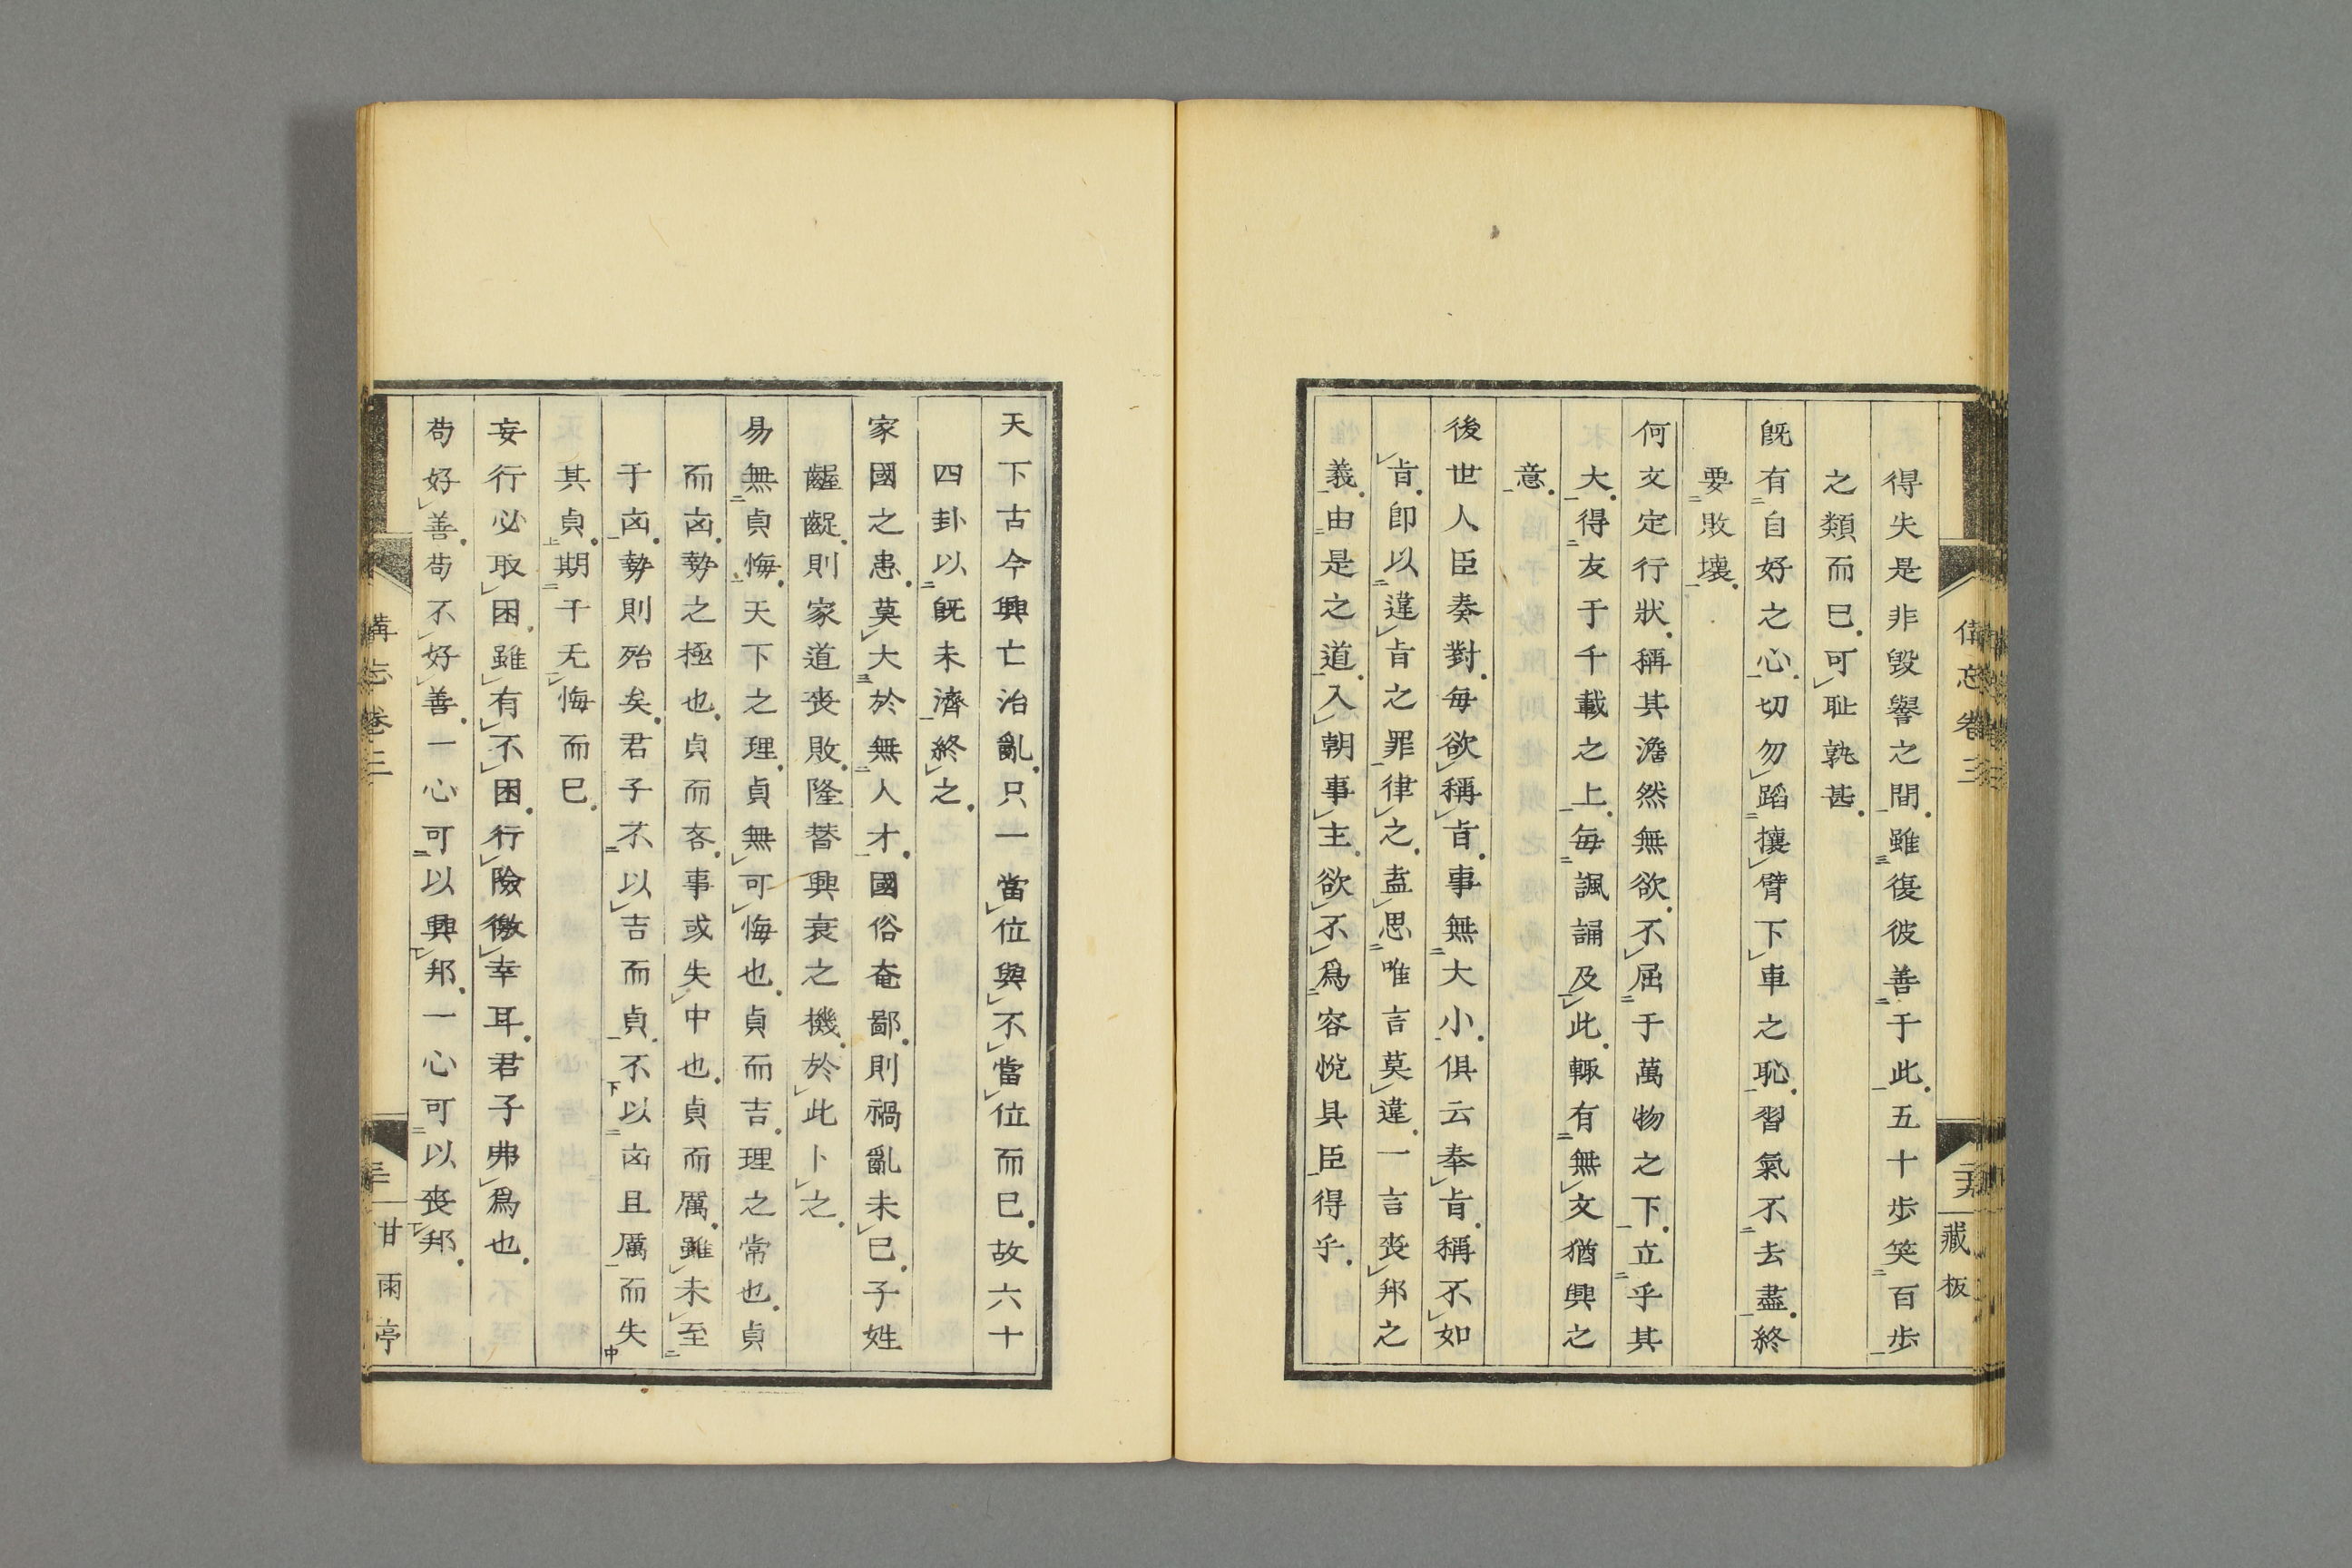 得失是非毀譽之間雖復彼善于此五十歩笑百歩
之類而已可耻孰甚
既有自好之心切勿蹈攘臂下車之恥習氣不去盡終
要敗壞
何文定行狀稱其澹然無欲不屈于萬物之下立乎其
大得友于千載之上每諷誦及此輒有無文猶興之
意
後世人臣奏對每欲稱旨事無大小俱云奉旨稱不如
旨卽以違旨之罪律之盍思唯言莫違一言喪邦之
義由是之道入朝事主欲不爲容悅具臣得乎
藏板
天下古今興亡治亂只一當位與不當位而已故六十
四卦以既未濟終之
家國之患莫大於無人才國俗奄鄙則禍亂未已子姓
齷齪則家道喪敗隆替興衰之機於此卜之
易無貞悔天下之理貞無可悔也貞而吉理之常也貞
而凶勢之極也貞而吝事或失中也貞而厲雖未至
于凶勢則殆矣君子不以吉而貞不以凶且厲而失
其貞期于无悔而已
妄行必取困雖有不困行險徼幸耳君子弗爲也
苟好善苟不好善一心可以興邦一心可以喪邦
甘雨亭